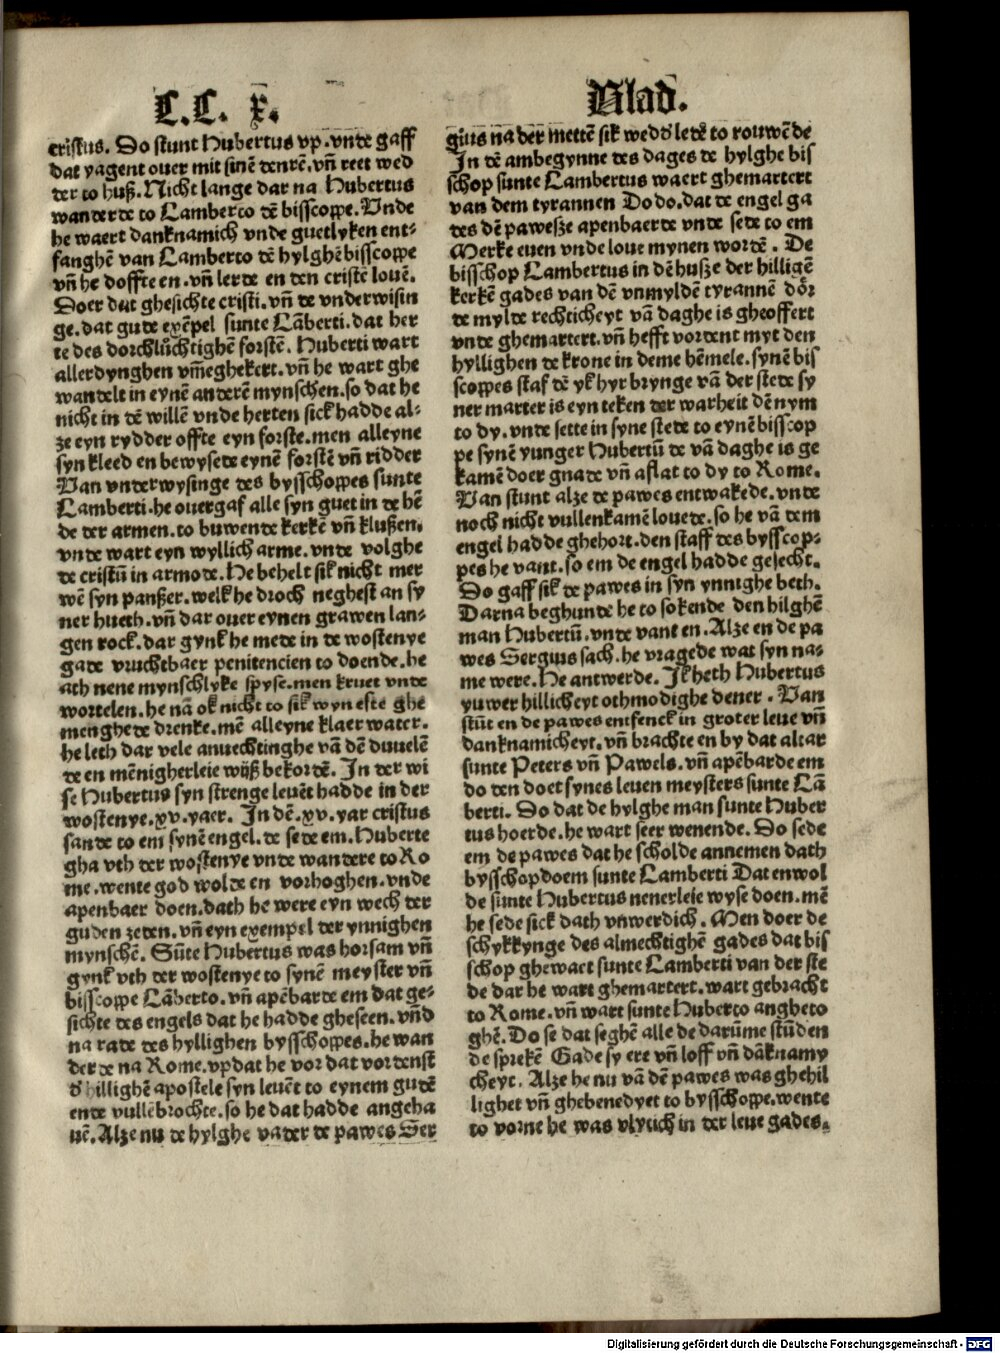 C.C. x.
Blad.
cristus. Do stunt Hubertus vp. vnde gaff
dat yagent ouer mit sinē denrē. vñ reet wed
der to huß. Nicht lange dar na Hubertus
wanderde to Lamberto dē bisscoppe. Vnde
he waert danknamich vnde guetlyken ent-
fanghē van Lamberto dē hylghē bisscoppe
vñ he doffte en. vñ lerde en den cristē louē.
Doer dut ghesichte cristi. vñ de vnderwisin
ge. dat gude exēpel sunte Lāberti. dat her
te des dorchlůchtighē forstē. Huberti wart
allerdynghen vm̄eghekert. vñ he wart ghe
wandelt in eynē anderē mynschen. so dat he
nicht in dē willē vnde herten sick hadde al-
ze eyn rydder offte eyn forste. men alleyne
syn kleed en bewysede eynē forstē vñ ridder
Van vnderwysinge des bysschoppes sunte
Lamberti. he ouergaf alle syn guet in de hē
de der armen. to buwende kerkē vñ klußen.
vnde wart eyn wyllich arme. vnde volghe
de cristū in armode. He behelt sik nicht mer
wē syn panßer. welk he droch neghest an sy
ner hueth. vñ dar ouer eynen grawen lan-
gen rock. dar gynk he mede in de wostenye
gade vruchtbaer penitencien to doende. he
ath nene mynschlyke spyse. men kruet vnde
wortelen. he nā ok nicht to sik wyn efte ghe
menghede drenke. mē alleyne klaer water.
he leth dar vele anuechtinghe vā dē duuelē
de en mēnigherleie wijß bekordē. In der wi
se Hubertus syn strenge leuēt hadde in der
wostenye. xv. yaer. In dē. xv. yar cristus
sande to em synē engel. de sede em. Huberte
gha vth der wostenye vnde wandere to Ro
me. wente god wolde en vorhoghen. vnde
apenbaer doen. dath he were eyn wech der
guden zeden. vñ eyn exempel der ynnighen
mynschē. Sūte Hubertus was horsam vñ
gynk vth der wostenye to synē meyster vñ
bisscoppe Lāberto. vñ apēbarde em dat ge-
sichte des engels dat he hadde gheseen. vñd
na rade des hyllighen bysschoppes. he wan
derde na Rome. vp dat he vor dat vordenst
d' hillighē apostele syn leuēt to eynem gudē
ende vullēbrochte. so he dat hadde angeha
uē. Alze nu de hylghe vader de pawes Ser
gius na der mettē sik wedd' ledē to rouwē de
In dē ambegynne des dages de hylghe bis
schop sunte Lambertus waert ghemartert
van dem tyrannen Dodo. dat de engel ga
des dē pawesze apenbaerde vnde sede to em
Merke euen vnde loue mynen wordē. De
bisschop Lambertus in dē husze der hilligē
kerkē gades van dē vnmyldē tyrannē dŏr
de mylde rechticheyt vā daghe is gheoffert
vnde ghemartert. vñ hefft vordent myt den
hyllighen de krone in deme hēmele. synē bis
scoppes staf dē yk hyr brynge vā der stede sy
ner marter is eyn teken der warheit dē nym
to dy. vnde sette in syne stede to eynē bisscop
pe synē yunger Hubertū de vā daghe is ge
kamē doer gnade vñ aflat to dy to Rome.
Van stunt alze de pawes entwakede. vnde
noch nicht vullenkamē louede. so he vā dem
engel hadde ghehort. den staff des bysscop-
pes he vant. so em de engel hadde gesecht.
Do gaff sik de pawes in syn ynnighe beth.
Darna beghunde he to sokende den hilghē
man Hubertū. vnde vant en. Alze en de pa
wes Sergius sach. he vragede wat syn na-
me were. He antwerde. Ik heth Hubertus
yuwer hillicheyt othmodighe dener. Van
stūt en de pawes entfenck in groter leue vñ
danknamicheyt. vñ brachte en by dat altar
sunte Peters vñ Pawels. vñ apēbarde em
do den doet synes leuen meysters sunte Lā
berti. Do dat de hylghe man sunte Huber
tus hoerde. he wart seer wenende. Do sede
em de pawes dat he scholde annemen dath
bysschopdoem sunte Lamberti Dat en wol
de sunte Hubertus nenerleie wyse doen. mē
he sede sick dath vnwerdich. Men doer de
schykkynge des almechtighē gades dat bis
schop ghewaet sunte Lamberti van der ste
de dar he wart ghemartert. wart gebracht
to Rome. vñ wart sunte Huberto angheto
ghē. Do se dat seghē alle de darūme stūden
de sprekē Gade sy ere vñ loff vñ dāknamy
cheyt. Alze he nu vā dē pawes was ghehil
lighet vñ ghebenedyet to bysschoppe. wente
to vorne he was vlytich in der leue gades.
Digitalisierung gefördert durch die Deutsche Forschungsgemeinschaft - DFG